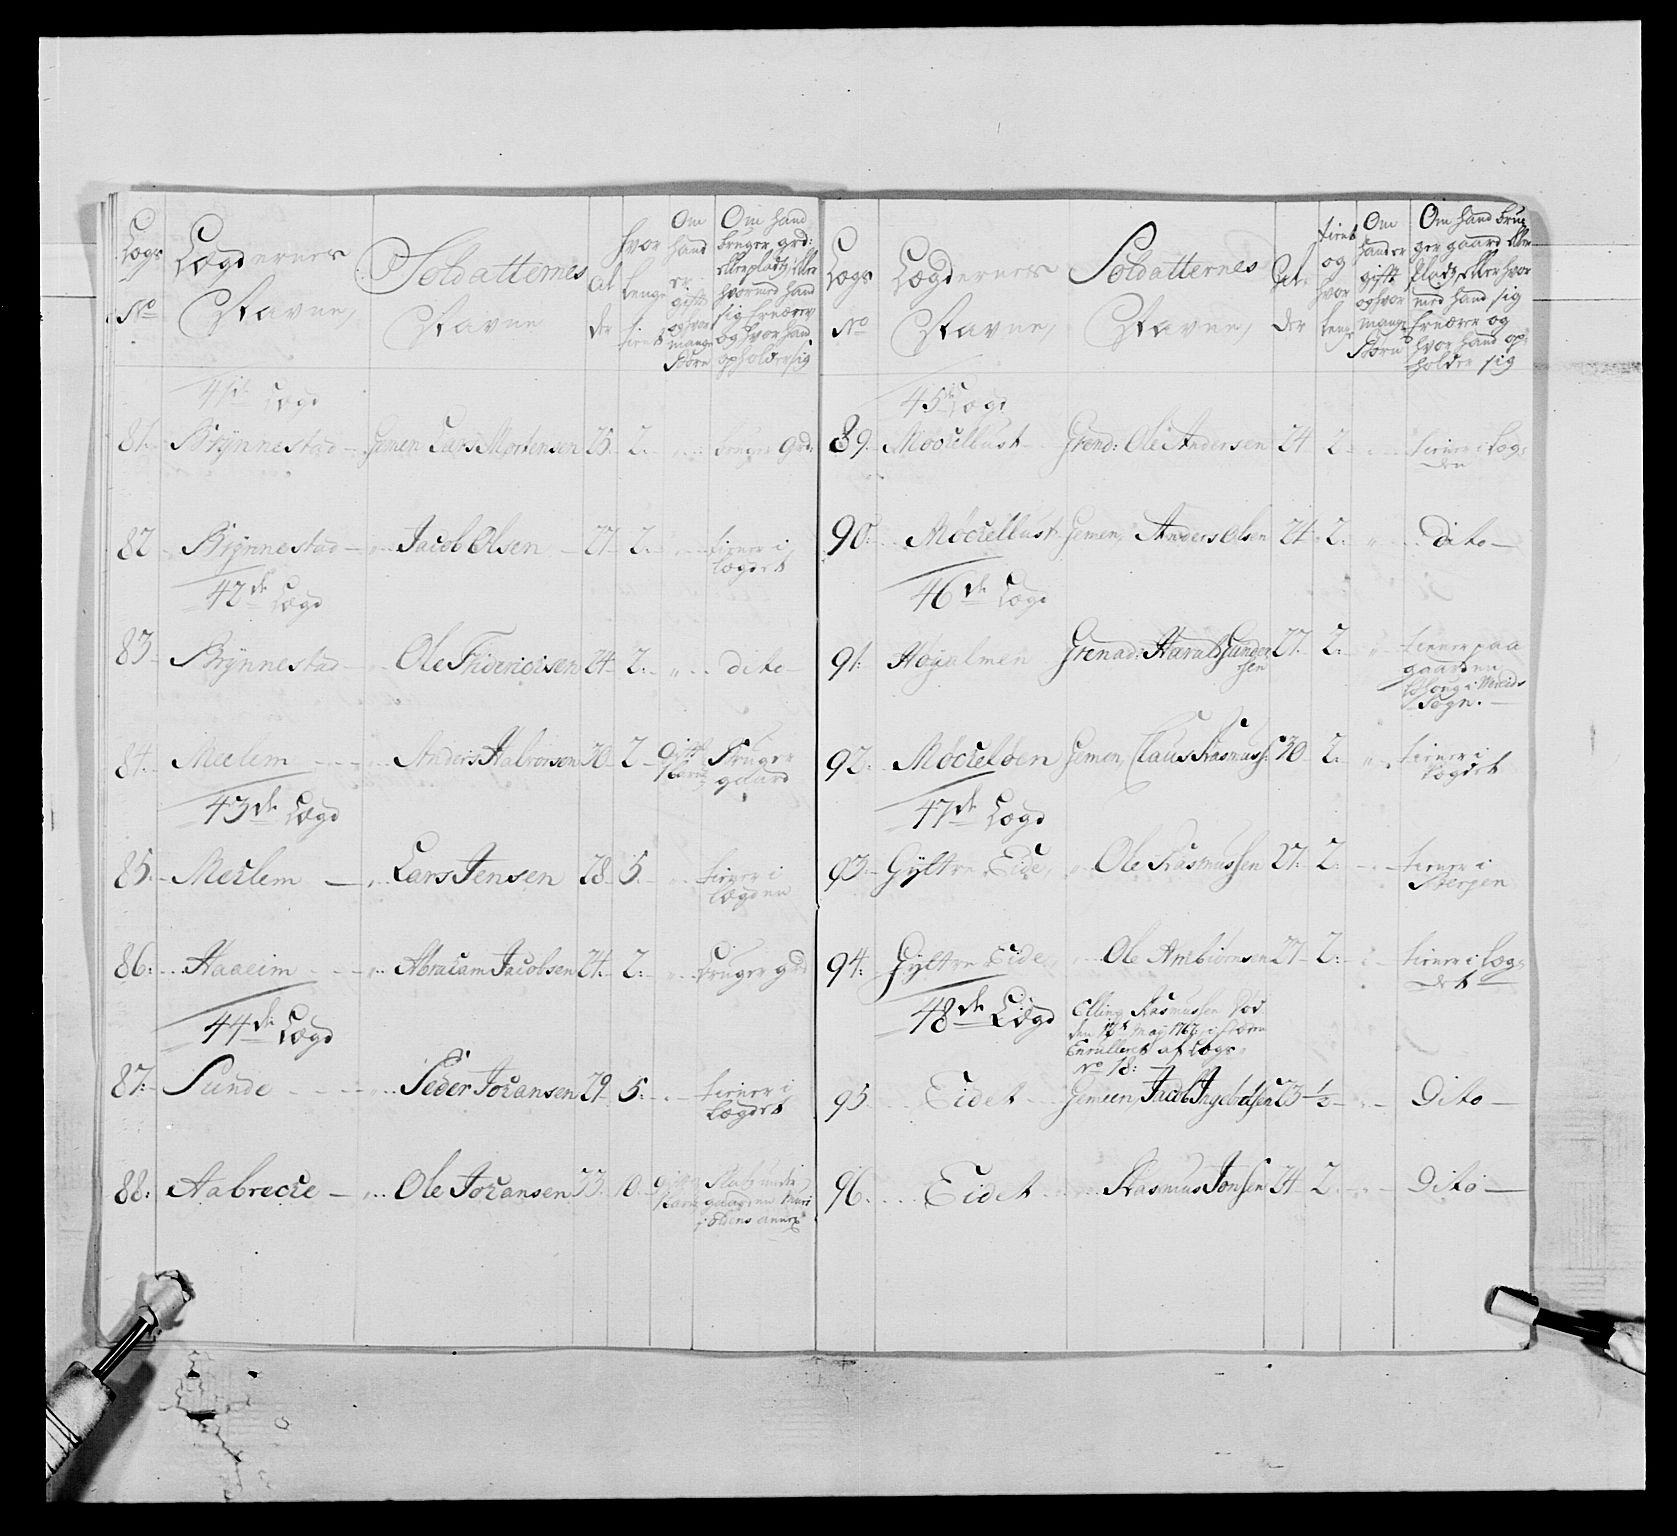 Lægs No
Lægdernes Navne,
Soldatternes Navne
Al der
hvor lenge tient
Om hand er gift og hvor mange Børn
Om hand bruger grd: eller pladz eller hvormed hand sig ernærer og hvor hand opholder sig
41de Lægd
81. Brÿnnestad Gemen Lars Mortensen 25 2. bruger grd:
82 Brÿnnestad Jacob Olsen 27 2. tiener i lægdet
42de Lægd
83 Brÿnnestad Ole Friderichsen 24 2: dito
84. Meelem Anders Halvorsen 30 2 gift bruger gaard
43de Lægd
85. Meelem Lars Jensen 28 5. tiener i lægden
86: Haaeim Abraham Jacobsen 24. 2: bruger grd
44de Lægd
87: Sunde Peder Johansen 29 5. tiener i Lægdet
88: Aabrecke Ole Johansen 33 10 gift Plads under gaarden Muri i Oldens annex
Lægs No
Lægdernes Navne,
Soldatternes Navne,
Al der
tient og hvor lenge
Om hand er gift og hvor mange Børn
Om hand bruger gaard eller Pladz eller hvor med hand sig ernærer og hvor hand opholder sig
45de Lægd
89. Møcellbust Grend: Ole Andersen 24 2 tiener i Lægden
90: Møckelbust Gemen, Anders Olsen 24 2. Dito
46de Lægd
91. Høÿalmen Grenad: Harald Gundersen 27. 2. tiener paa gaarden i Sogn.
92. Møckeloen Gemen, Claus Rasmuss: 30 2. tiener i lægdet
47de Lægd
93. Gÿltre Eide, Ole Rasmussen 27. 2. tiener i Bergen
94. Gÿltre Eide Ole Arnbiørnsen 27 2: tiener i Lægdet
48de Lægd
Elling Rasmussen død den May 1767, i Enrulleret af Lægs No 18:
95. Eidet Gemeen, Jacob 23 ½ Dito
96. Eidet Rasmus Jonsen 24 2 Dito